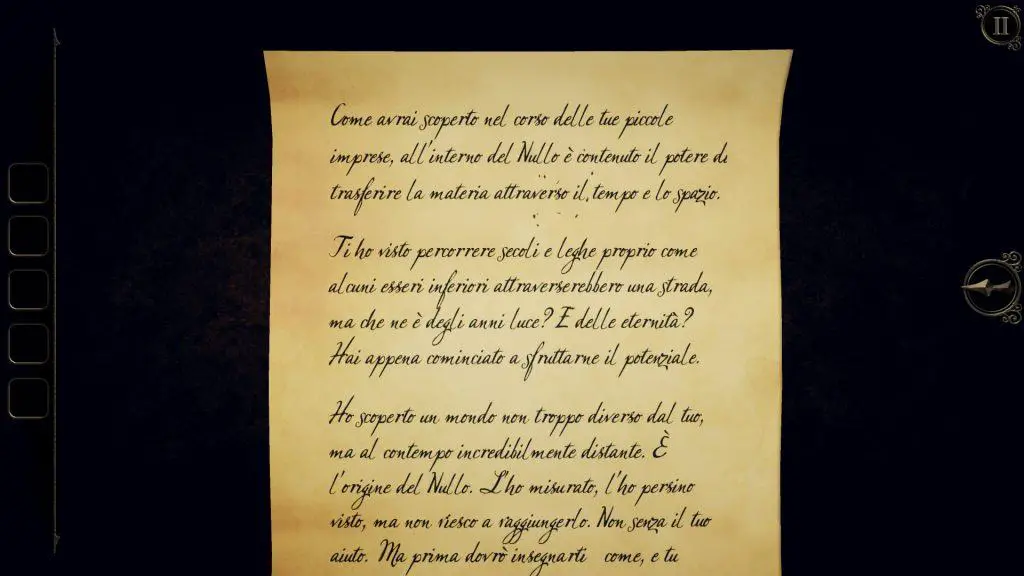 II
Come avrai scoperto nel corso delle tue piccole
imprese, all'interno del Nullo è contenuto il potere di
trasferire la materia attraverso il tempo e lo spazio.
Ti ho visto percorrere secoli e leghe proprio come
alcuni esseri inferiori attraverserebbero una strada,
ma che ne è degli anni luce? E delle eternità?
Hai appena cominciato a sfruttarne il potenziale.
Ho scoperto un mondo non troppo diverso dal tuo,
ma al contempo incredibilmente distante. È
l'origine del Nullo. L'ho misurato, l'ho persino
visto, ma non riesco a raggiungerlo. Non senza il tuo
aiuto. Ma prima dovrò insegnarti come, e tu